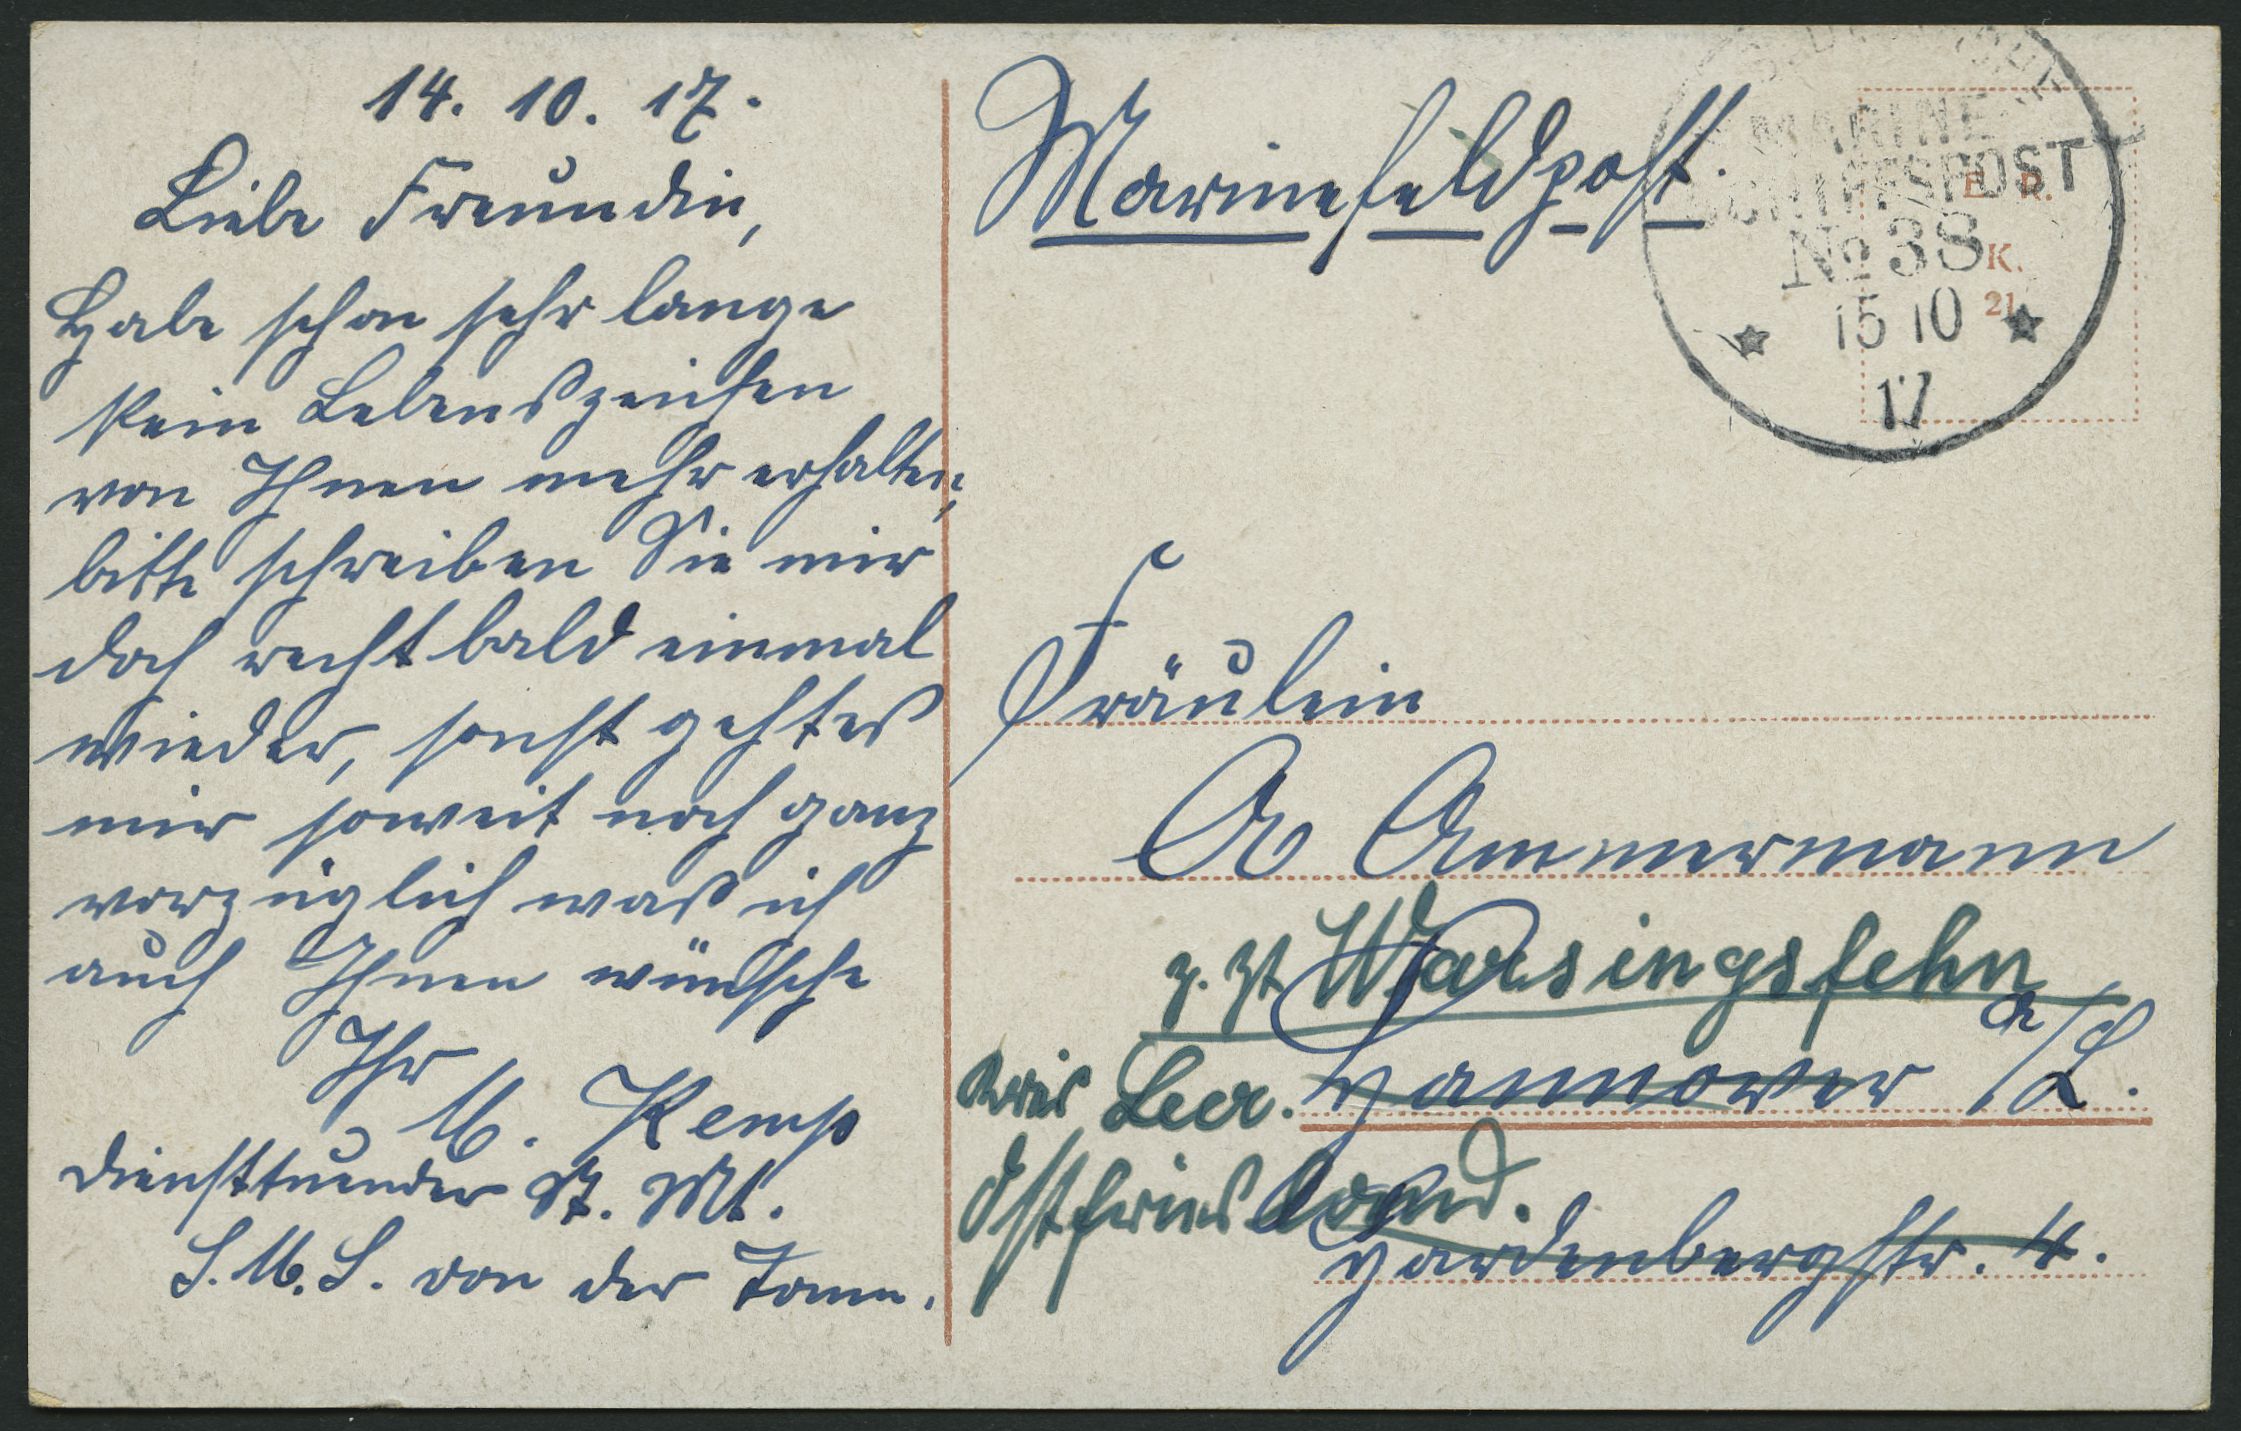 14. 10. 17.
Liebe Freundin,
Habe schon sehr lange
kein Lebenszeichen
von Ihnen mehr erhalten,
bitte schreiben Sie mir
doch recht bald einmal
wieder, sonst geht es
mir soweit noch ganz
vorzüglich waß ich
auch Ihnen wünsche
Ihr
M. Kemp
Diensttuender
S.M.S. von der Tann.
Marinefeldpost.
MARINE
SCHIFFSPOST
No 38
15 10
17
E. R.
K.
21
Fräulein
A Ammermann
z. Zt Warsingsfehn
Kreis Leer. Hannover a/L.
Ostfriesland.
Hardenbergstr. 4.